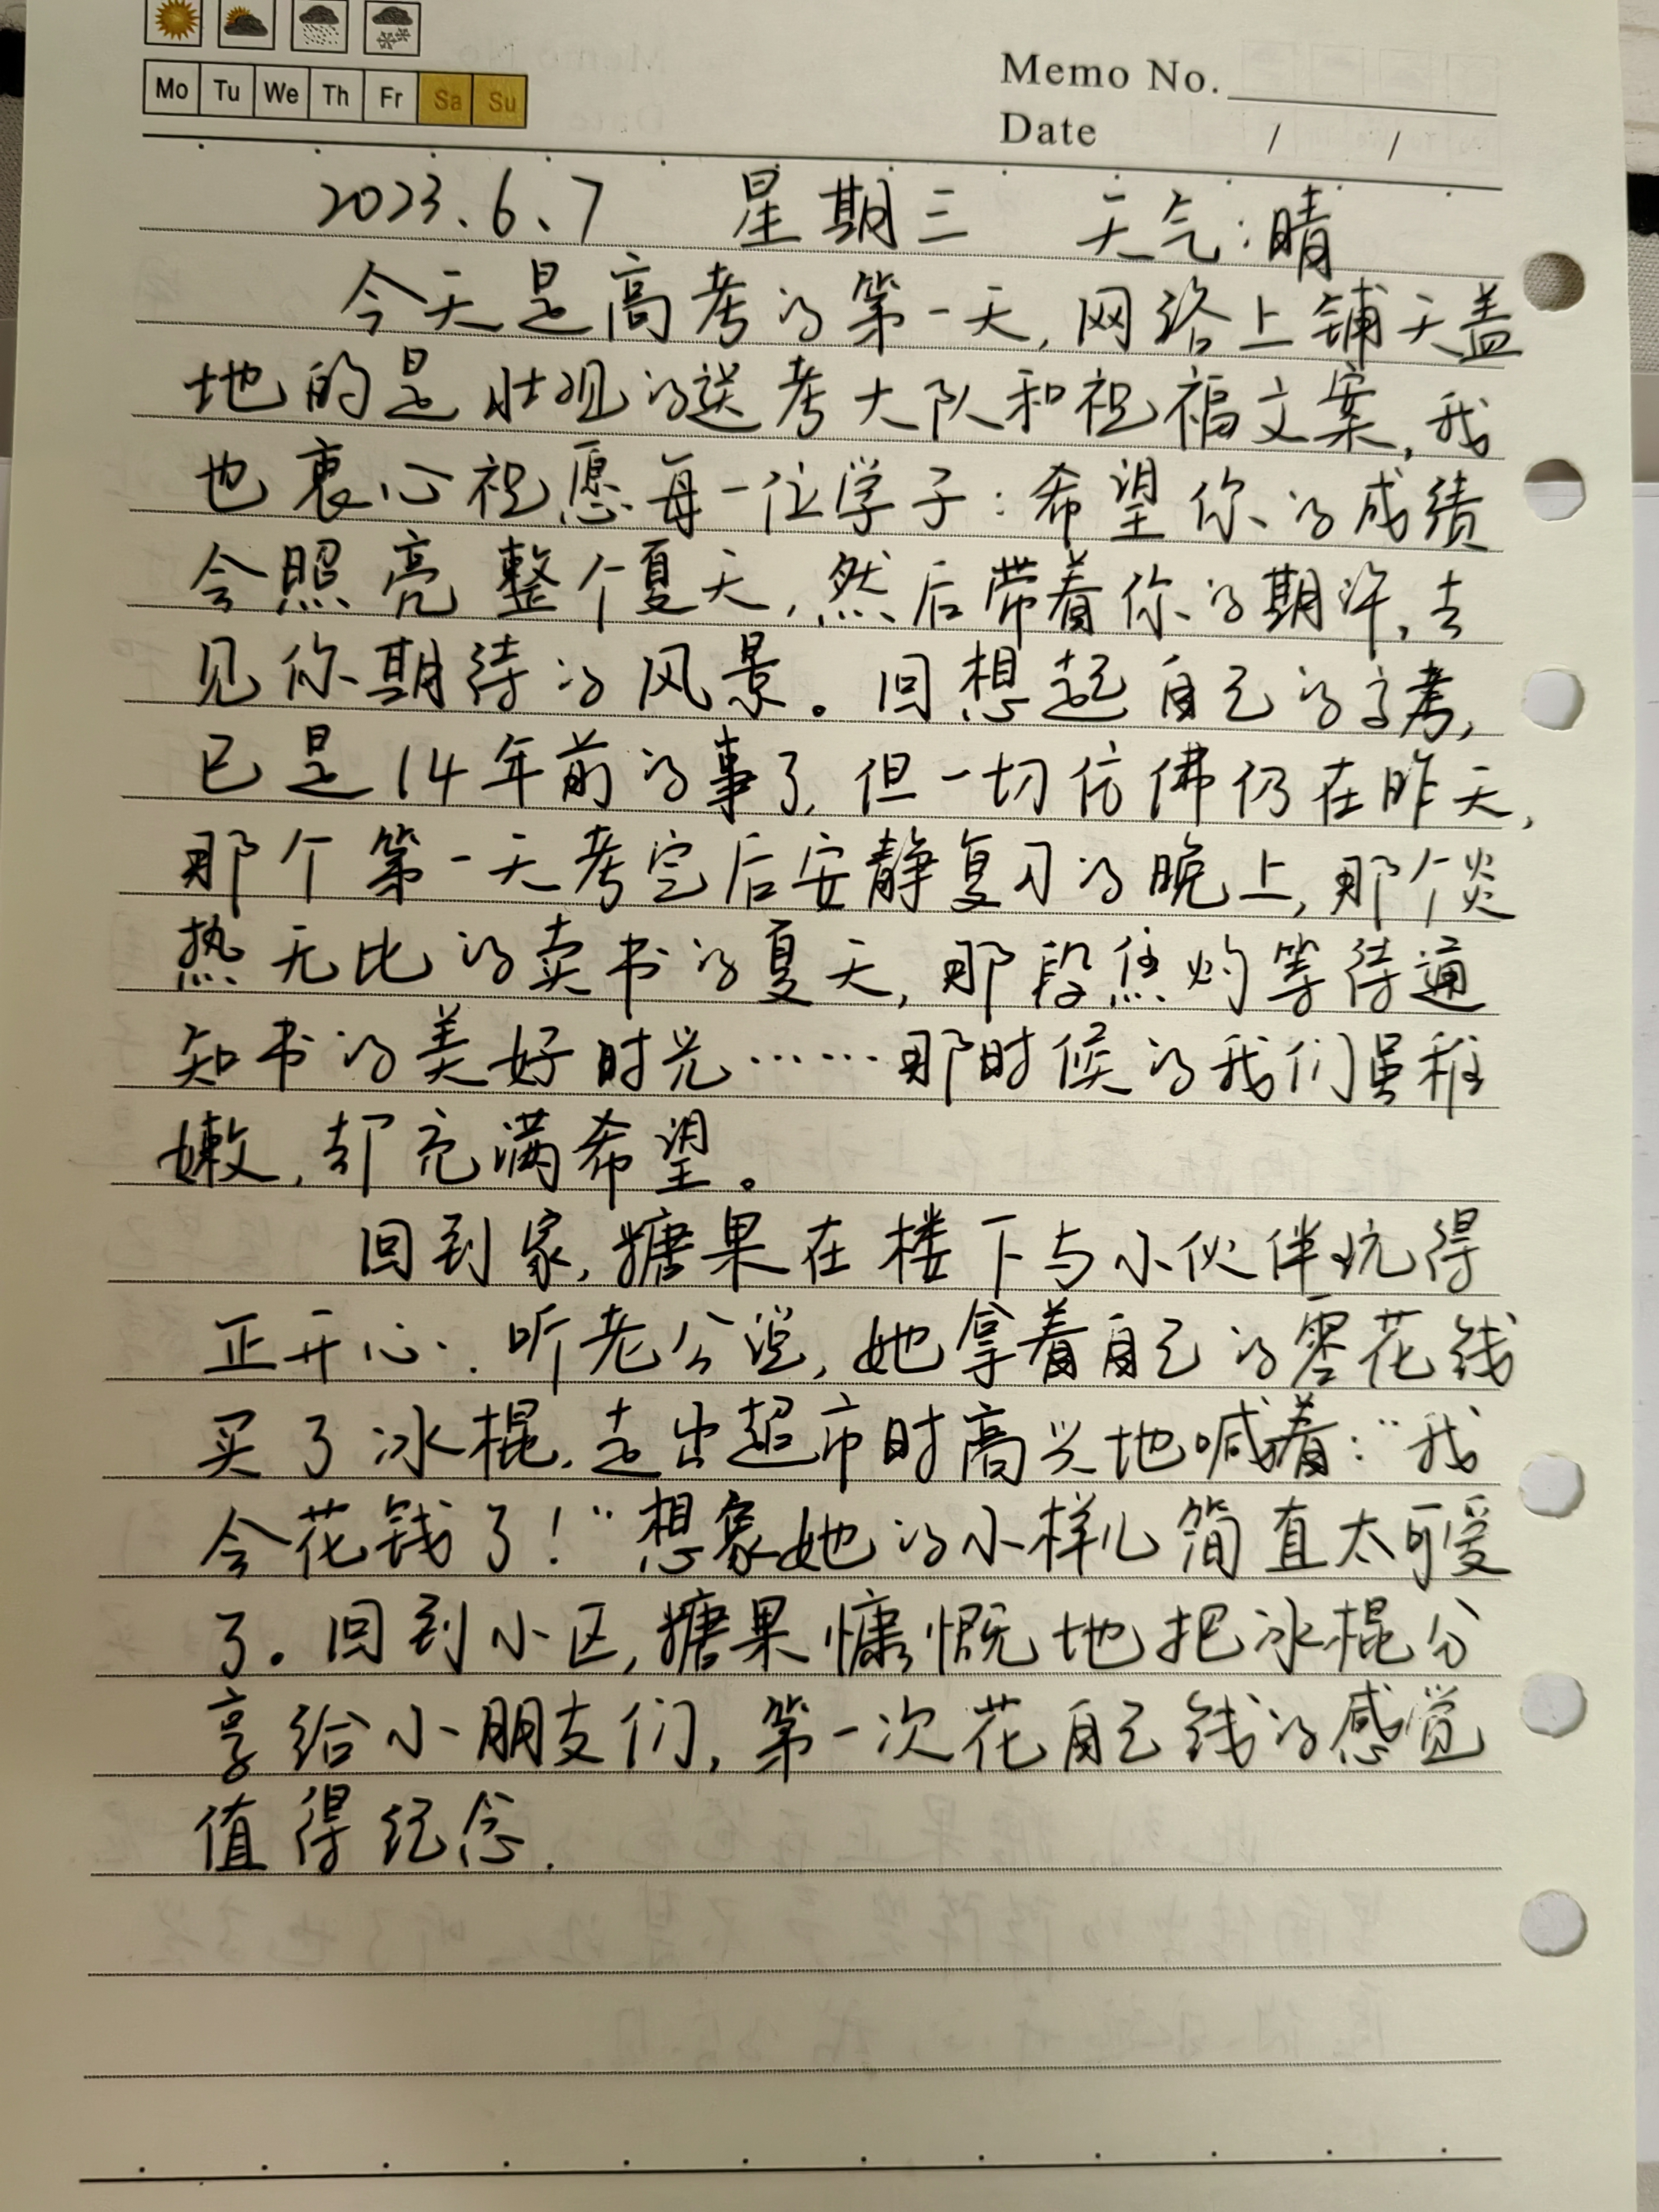 Mo Tu We Th Fr Sa Su
Memo No.
Date / /
2023.6.7 星期三 天气:晴
今天是高考的第一天,网络上铺天盖
地的是壮观的送考大队和祝福文案,我
也衷心祝愿每一位学子:希望你的成绩
会照亮整个夏天,然后带着你的期许,去
见你期待的风景。回想起自己的高考,
已是14年前的事了,但一切仿佛仍在昨天,
那个第一天考完后安静复习的晚上,那个炎
热无比的卖书的夏天,那段焦灼等待通
知书的美好时光……那时候的我们虽稚
嫩,却充满希望。
回到家,糖果在楼下与小伙伴玩得
正开心.听老公说,她拿着自己的零花钱
买了冰棍,走出超市时高兴地喊着:“我
会花钱了!”想象她的小样儿简直太可爱
了。回到小区,糖果慷慨地把冰棍分
享给小朋友们,第一次花自己钱的感觉
值得纪念.